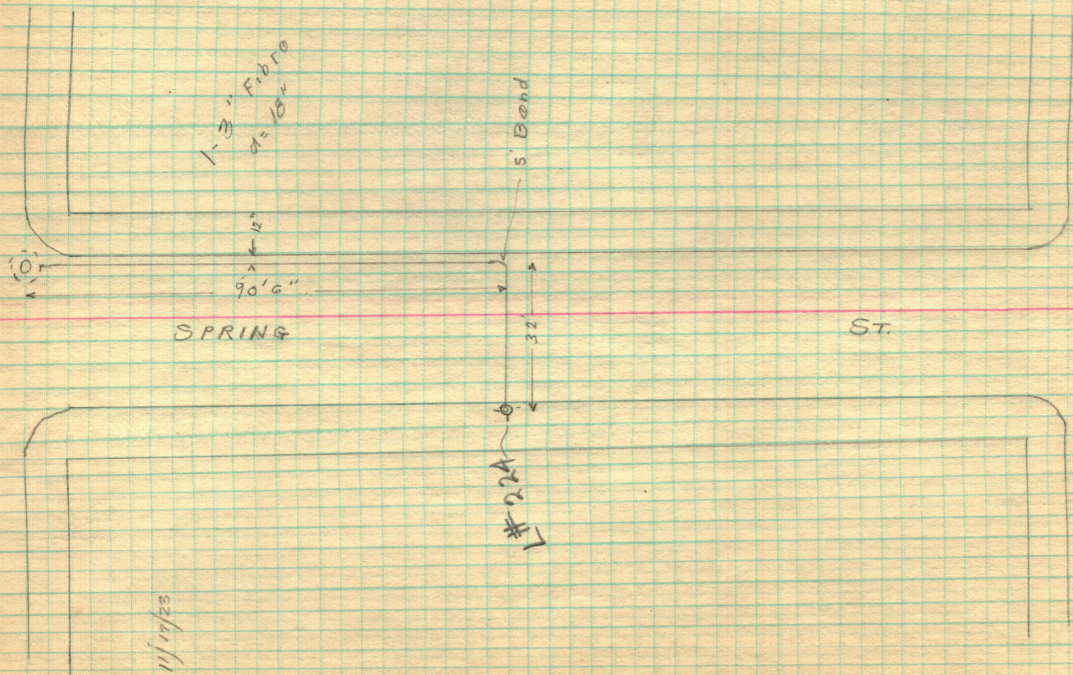 1-3" Fibre
d=18"
5' Bend
12"
90'6"
32'
SPRING ST.
L#224
11/17/23